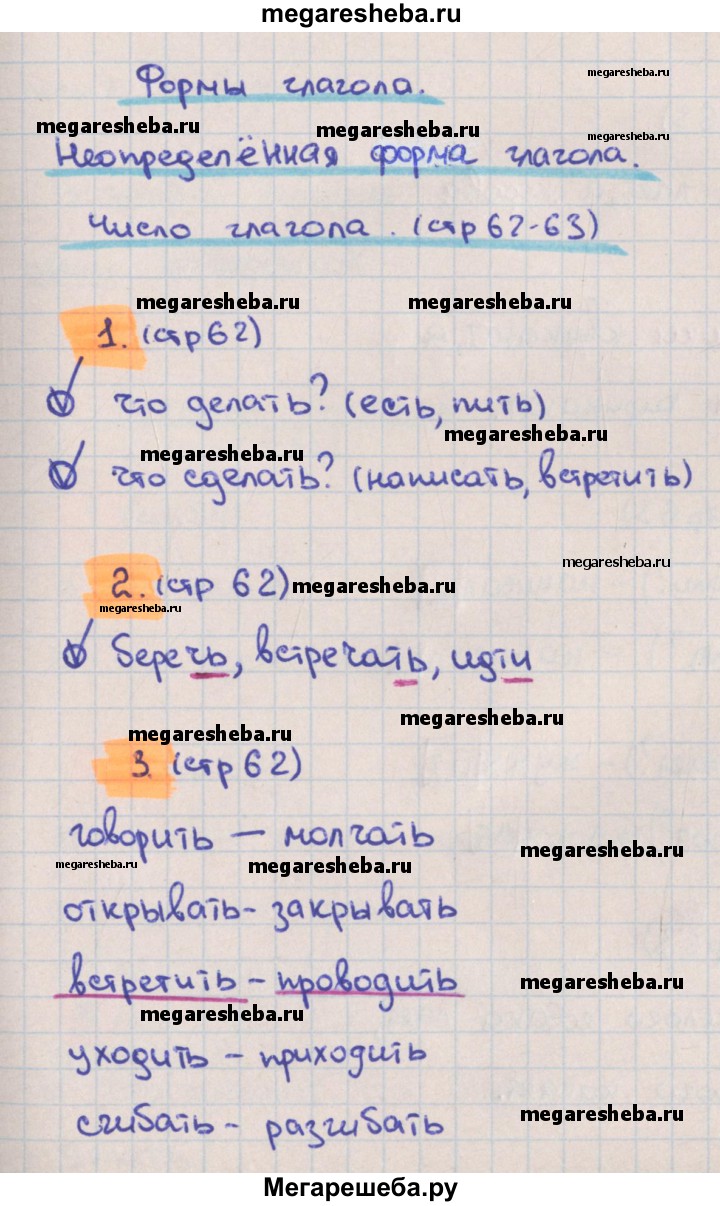 megaresheba.ru
Формы глагола.
megaresheba.ru
megaresheba.ru
megaresheba.ru
megaresheba.ru
Неопределённая форма глагола.
Число глагола. (стр 62-63)
megaresheba.ru
megaresheba.ru
1. (стр 62)
что делать? (есть, пить)
megaresheba.ru
megaresheba.ru
что сделать? (написать, встретить)
megaresheba.ru
2. (стр 62)
megaresheba.ru
megaresheba.ru
беречь, встречать, идти
megaresheba.ru
megaresheba.ru
3. (стр 62)
говорить — молчать
megaresheba.ru
megaresheba.ru
megaresheba.ru
открывать - закрывать
встретить - проводить
megaresheba.ru
megaresheba.ru
уходить - приходить
сгибать - разгибать
megaresheba.ru
Мегарешеба.ру